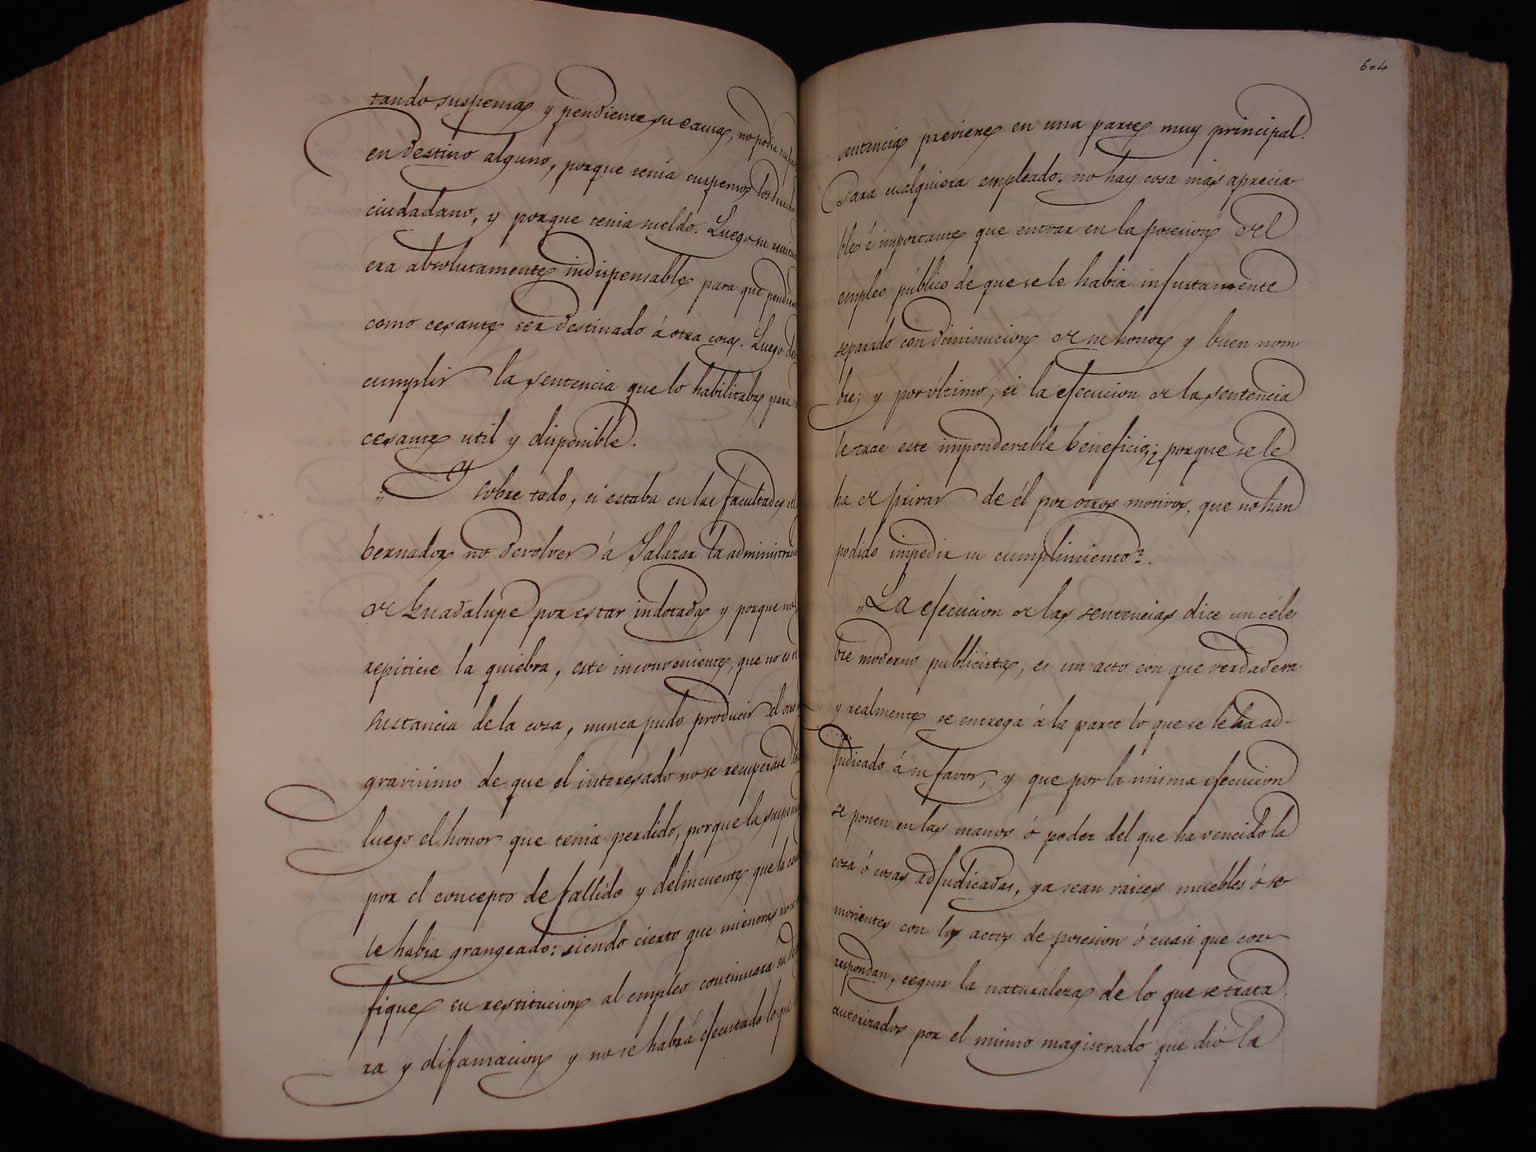 tando suspensa y pendiente su causa, no podia
en destino alguno, porque tenia suspensos los
ciudadano, y porque tenia sueldo. Luego su
era absolutamente indispensable para que
como cesante ser destinado á otra cosa. Luego
cumplir la sentencia que lo habilitaba para
cesante util y disponible.
„Y sobre todo, si estaba en las facultades
bernador no devolver á Salazar la administra
de Guadalupe por estar indotada y porque no
repitiese la quiebra, este inconveniente, que no es
sustancia de la cosa, nunca pudo producir el
gravisimo de que el interesado no se recuperase
luego el honor que tenia perdido, porque la
por el concepto de fallido y delincuente que la
le habia grangeado: siendo cierto que mientras no se
fique su restitucion al empleo continuara su
ra y difamacion y no se habrá ejecutado lo que
604
sentencia previene en una parte muy principal.
Para cualquiera empleado, no hay cosa mas aprecia
ble é importante que entrar en la posesion del
empleo público de que se le habia injustamente
separado con diminucion de su honor y buen nom
bre; y por último, si la ejecucion de la sentencia
le trae este imponderable beneficio; ¿porque se le
ha de privar de él por otros motivos, que no han
podido impedir su cumplimiento?.
„La ejecucion de las sentencias dice un céle
bre moderno publicista, es un acto con que verdadera
y realmente se entrega á la parte lo que se le ha ad-
judicado á su favor, y que por la misma ejecucion
se ponen en las manos ó poder del que ha vencido la
cosa ó cosas adjudicadas, ya sean raices muebles ó se
movientes con los actos de posesion ó cuasi que cor
respondan, segun la naturaleza de lo que se trata
autorizados por el mismo magistrado que dió la